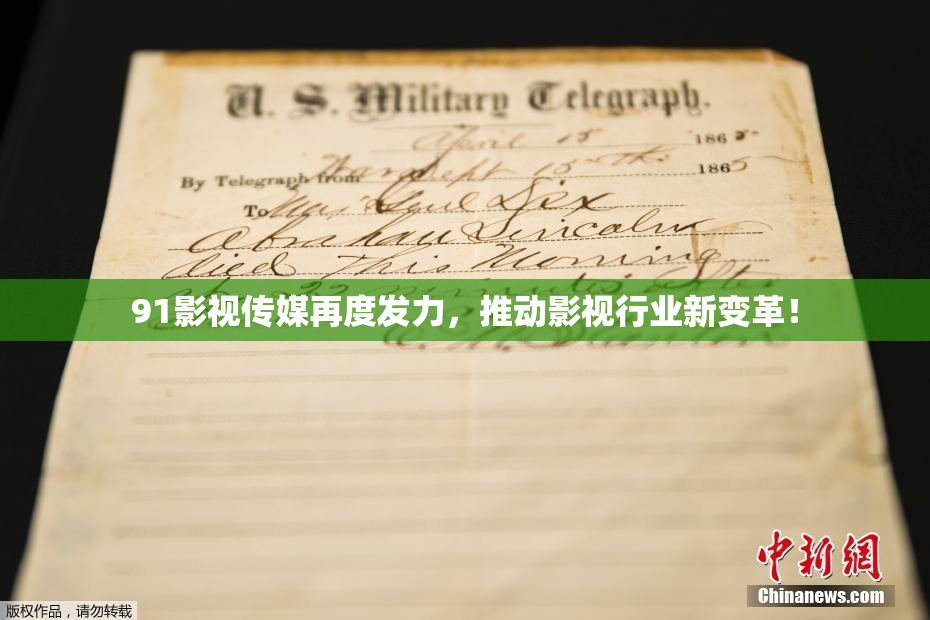 U. S. Military Telegraph.
April 15 1865
By Telegraph from War Dept 15th 1865
To Maj Genl Dix
Abraham Lincoln
died This Morning
at 22 minutes after
91影视传媒再度发力，推动影视行业新变革！
E. M. Stanton
中新網
Chinanews.com
版权作品，请勿转载